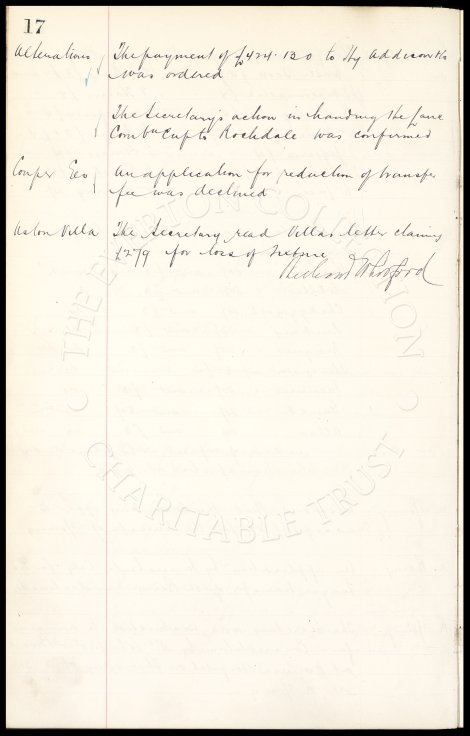 17
Alterations The payment of £424.13.0 to Hy Addison & Co
was ordered
The Secretary's action in handing the Lanc
Combn Cup to Rochdale was confirmed
Cooper Geo An application for reduction of transfer
fee was declined
Aston Villa The Secretary read Villas letter claiming
£279 for loss of fixture
THE EVERTON COLLECTION
CHARITABLE TRUST